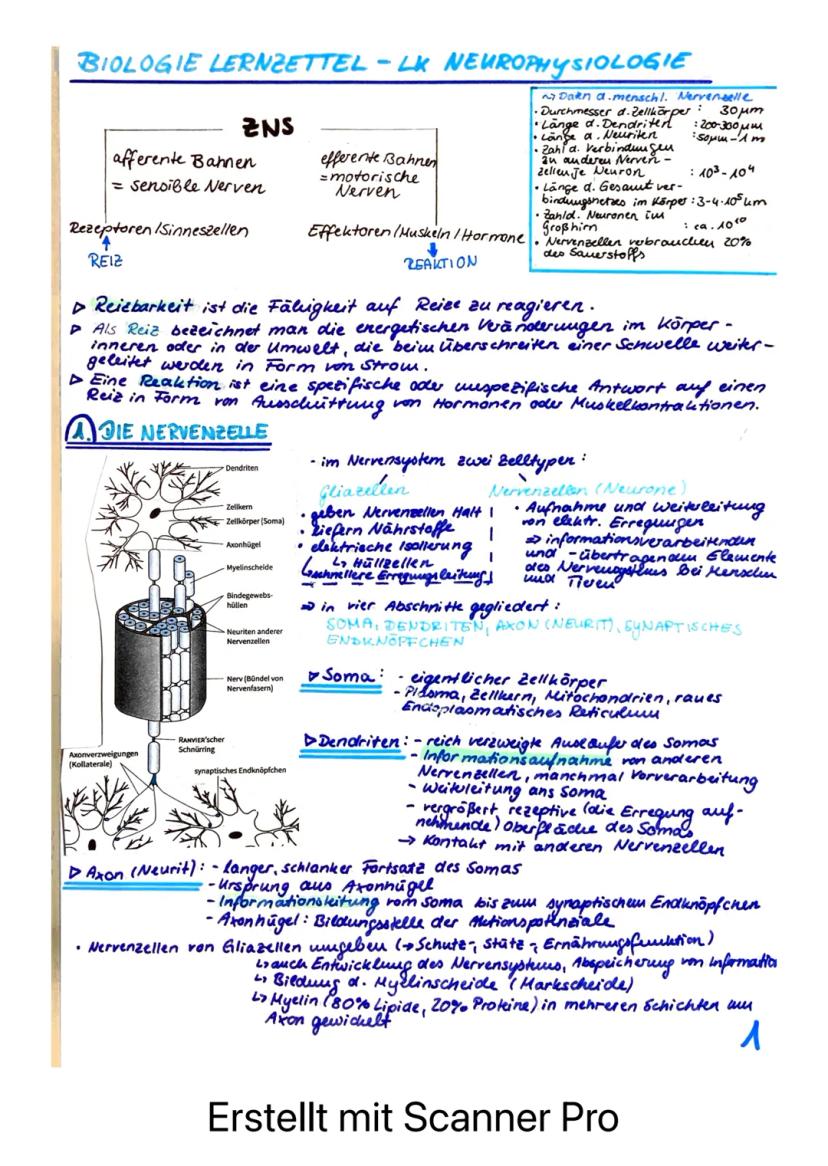 BIOLOGIE LERNZETTEL – LK NEUROPHYSIOLOGIE
ZNS
afferente Bahnen
= sensible Nerven
efferente Bahnen
= motorische
Nerven
Rezeptoren/Sinneszellen
Effektoren/Muskeln/Hormone
REIZ
REAKTION
~> Daten d. menschl. Nervenzelle
• Durchmesser d. Zellkörper : 30 µm
• Länge d. Dendriten : 200-300 µm
• Länge d. Neuriten : 50µm – 1 m
• Zahl d. Verbindungen
zu anderen Nerven-
zellen je Neuron : 10³ - 10⁴
• Länge d. Gesamtver-
bindungsnetzes im Körper : 3-4·10⁵ km
• Zahl d. Neuronen im
Großhirn : ca. 10¹⁰
• Nervenzellen verbrauchen 20%
des Sauerstoffs
▷ Reizbarkeit ist die Fähigkeit auf Reize zu reagieren.
▷ Als Reiz bezeichnet man die energetischen Veränderungen im Körper-
inneren oder in der Umwelt, die beim Überschreiten einer Schwelle weiter-
geleitet werden in Form von Strom.
▷ Eine Reaktion ist eine spezifische oder unspezifische Antwort auf einen
Reiz in Form von Ausschüttung von Hormonen oder Muskelkontraktionen.
1. DIE NERVENZELLE
Dendriten
Zellkern
Zellkörper (Soma)
Axonhügel
Myelinscheide
Bindegewebs-
hüllen
Neuriten anderer
Nervenzellen
Nerv (Bündel von
Nervenfasern)
RANVIER'scher
Schnürring
Axonverzweigungen
(Kollaterale)
synaptisches Endknöpfchen
- im Nervensystem zwei Zelltypen :
Gliazellen
• geben Nervenzellen Halt
• liefern Nährstoffe
• elektrische Isolierung
↳ Hüllzellen
↳ schnellere Erregungsleitung
Nervenzellen (Neurone)
• Aufnahme und Weiterleitung
von elektr. Erregungen
⇒ informationsverarbeitenden
und -übertragenden Elemente
des Nervensystems bei Menschen
und Tieren
⇒ in vier Abschnitte gegliedert :
SOMA, DENDRITEN, AXON (NEURIT), SYNAPTISCHES
ENDKNÖPFCHEN
▷ Soma : - eigentlicher Zellkörper
- Plasma, Zellkern, Mitochondrien, raues
Endoplasmatisches Reticulum
▷ Dendriten : - reich verzweigte Ausläufer des Somas
- Informationsaufnahme von anderen
Nervenzellen, manchmal Vorverarbeitung
- Weiterleitung ans Soma
- vergrößert rezeptive (die Erregung auf-
nehmende) Oberfläche des Somas
→ Kontakt mit anderen Nervenzellen
▷ Axon (Neurit) : - langer, schlanker Fortsatz des Somas
- Ursprung aus Axonhügel
- Informationsleitung vom Soma bis zum synaptischem Endknöpfchen
- Axonhügel : Bildungsstelle der Aktionspotenziale
• Nervenzellen von Gliazellen umgeben (→ Schutz-, Stütz-, Ernährungsfunktion)
↳ auch Entwicklung des Nervensystems, Abspeicherung von Informatio
↳ Bildung d. Myelinscheide (Markscheide)
↳ Myelin (80% Lipide, 20% Proteine) in mehreren Schichten um
Axon gewickelt
1
Erstellt mit Scanner Pro